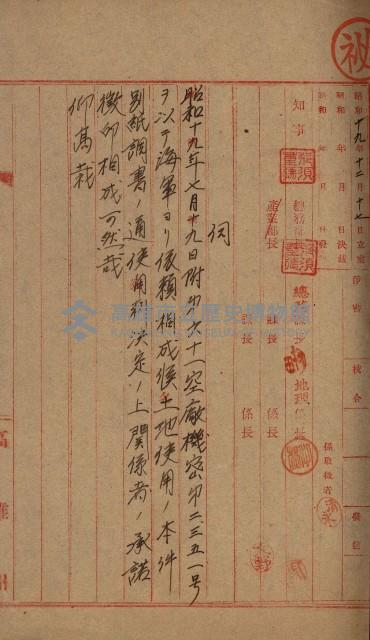 秘
昭和十九年十二月十七日立案
昭和 年 月 日決裁
昭和 年 月 日發
淨書
校合
發送
知事
總務部長
產業部長
總務課長
課長
課長
地理係長
係長
係長
係取扱者
伺
昭和十九年七月十九日附第六十一空廠機密第二三五一号
ヲ以テ海軍ヨリ依頼相成候土地使用ノ本件
別紙調書ノ通使用料決定ノ上関係者ノ承諾
徴印相成可然哉
仰高裁
高雄州
高雄市立歷史博物館